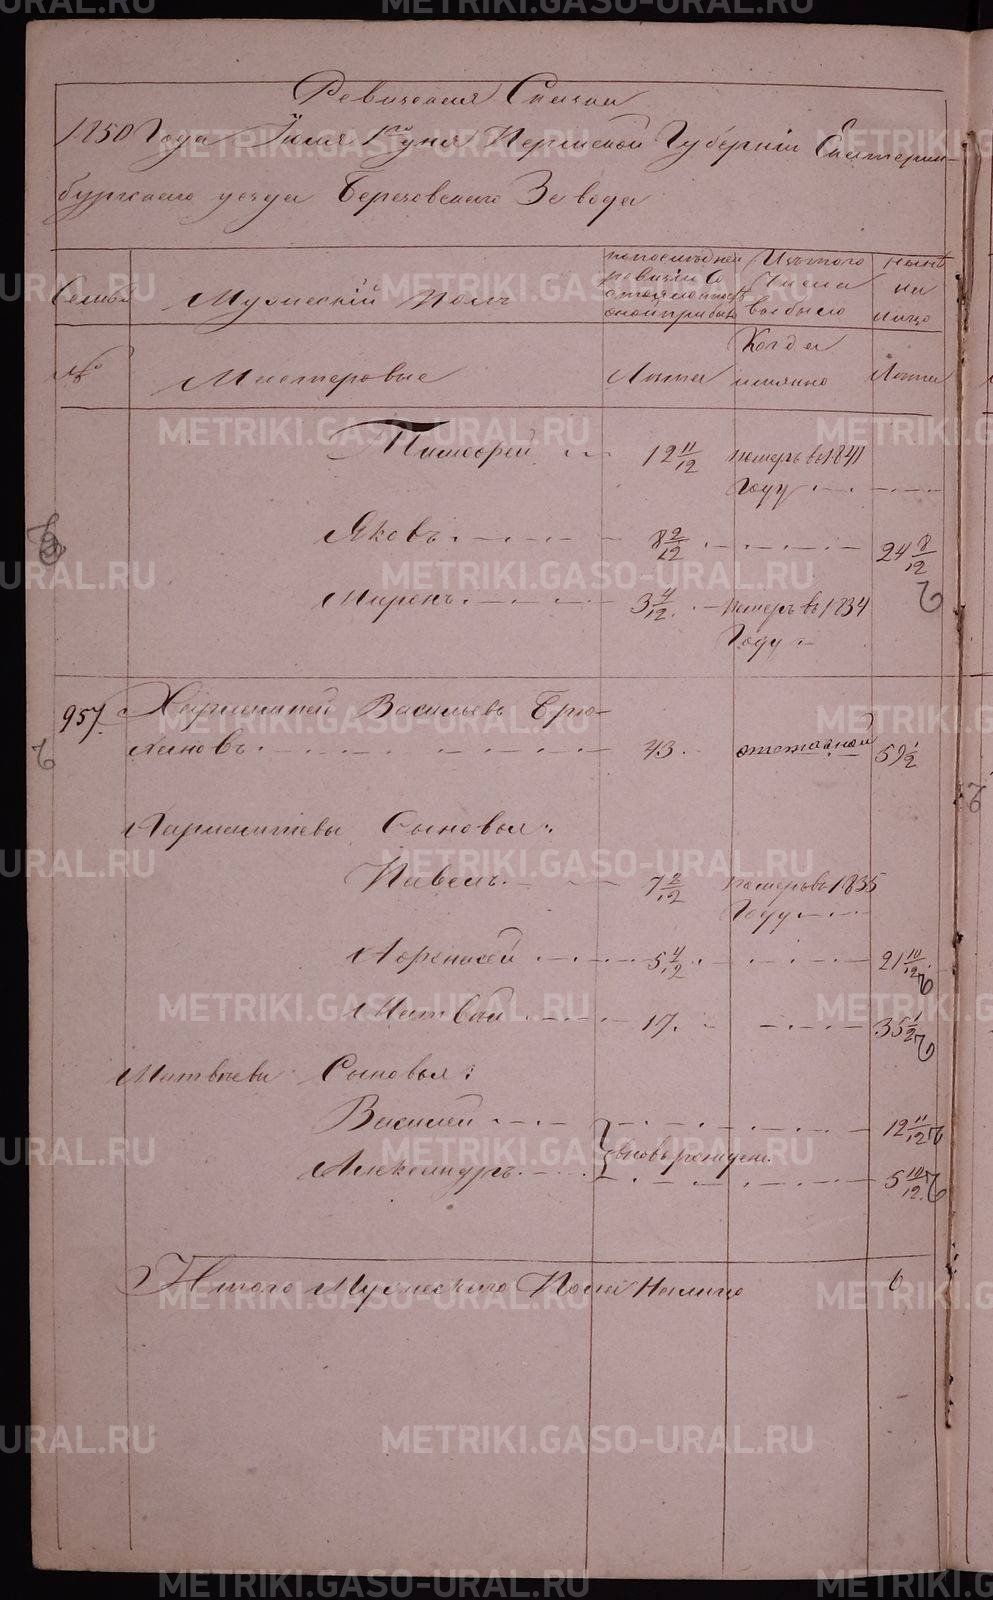 Ревизская Сказка
1850 Года Июля 1го дня Пермской Губернiи Екатерин-
бургскаго уезда Березовскаго Завода
Семьи Мужескiй полъ по последней Изъ того ныне
ревизiи Со числа на
выбыло лицо
Когда
№ Мастеровые Лета имянно Лета
Тимофей 12 11/12 померъ въ 1841
Году
Яковъ 8 2/12 24 8/12
Миронъ 3 4/12 померъ въ 1834
Году
957. Харлампей Васильевъ Брю-
хановъ 43 отставной 59 1/2
Харлампiевы Сыновья:
Павелъ 7 2/12 померъ въ 1835
Году
Афонасей 5 4/12 21 10/12
Матвей 17 35 1/2
Матвеевы Сыновья:
Василей 12 11/12
вновь рожден.
Александръ 5 10/12
Итого Мужескаго Пола На лицо 6
METRIKI.GASO-URAL.RU